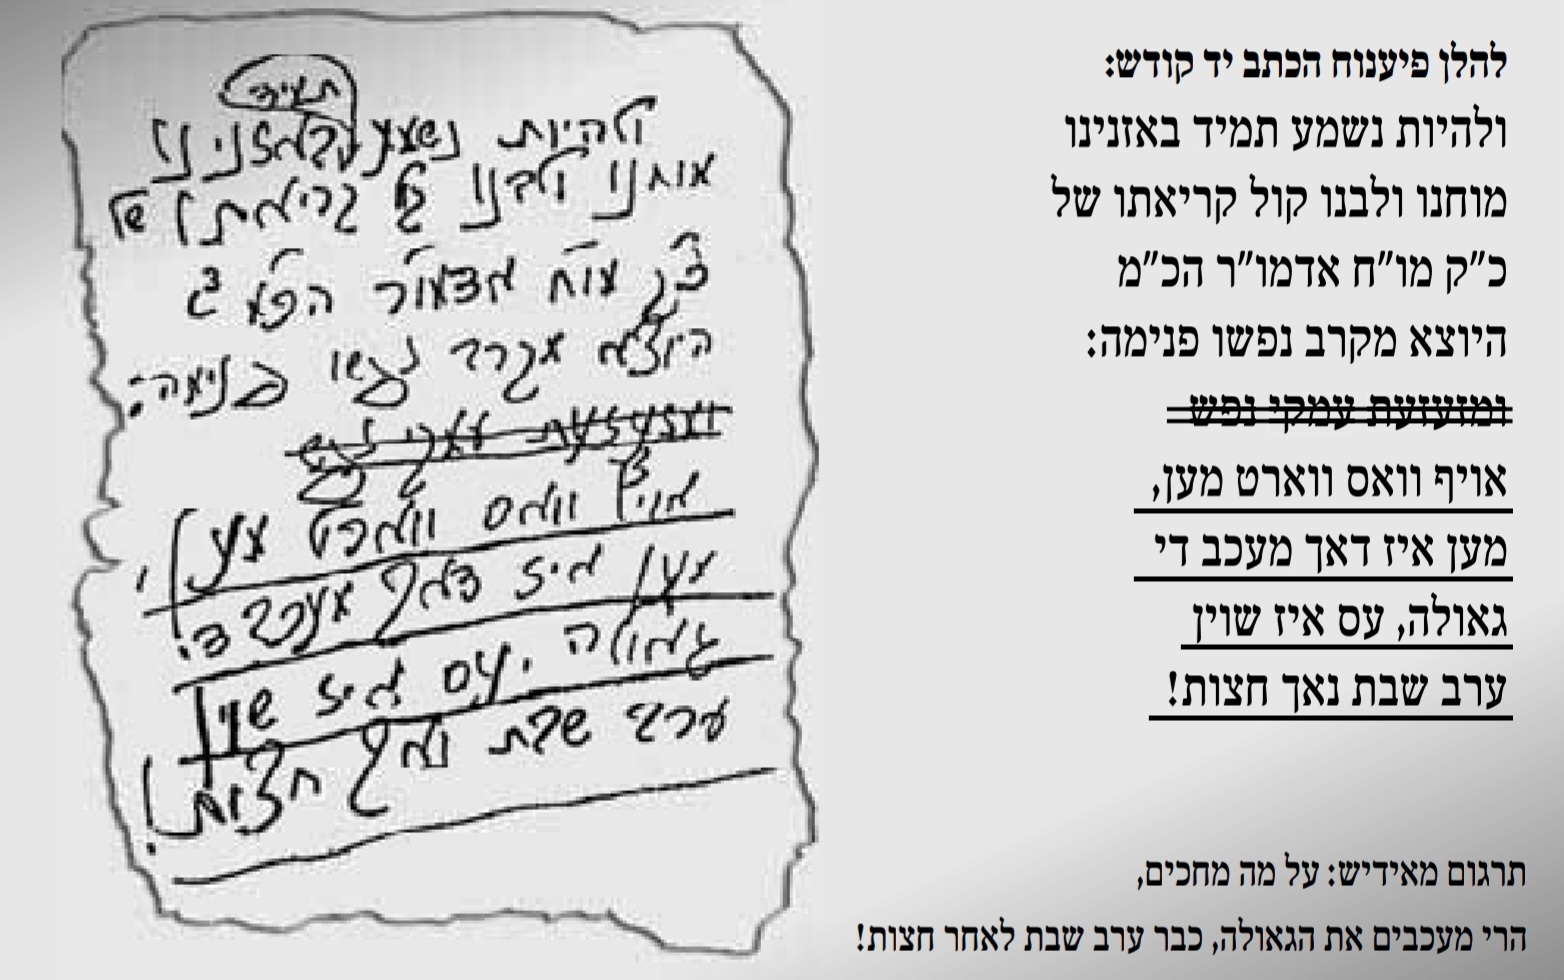 להלן פיענוח הכתב יד קודש:
ולהיות נשמע תמיד באזנינו
מוחנו ולבנו קול קריאתו של
כ"ק מו"ח אדמו"ר הכ"מ
היוצא מקרב נפשו פנימה:
ומזעזעת עמקי נפש
אויף וואס ווארט מען,
מען איז דאך מעכב די
גאולה, עס איז שוין
ערב שבת נאך חצות!
תרגום מאידיש: על מה מחכים,
הרי מעכבים את הגאולה, כבר ערב שבת לאחר חצות!
תמיד
ולהיות נשמע באזנינו
מוחנו ולבנו קול קריאתו של
כ"ק מו"ח אדמו"ר הכ"מ
היוצא מקרב נפשו פנימה:
ומזעזעת עמקי נפש
אויף וואס ווארט מען,
מען איז דאך מעכב די
גאולה, עס איז שוין
ערב שבת נאך חצות!